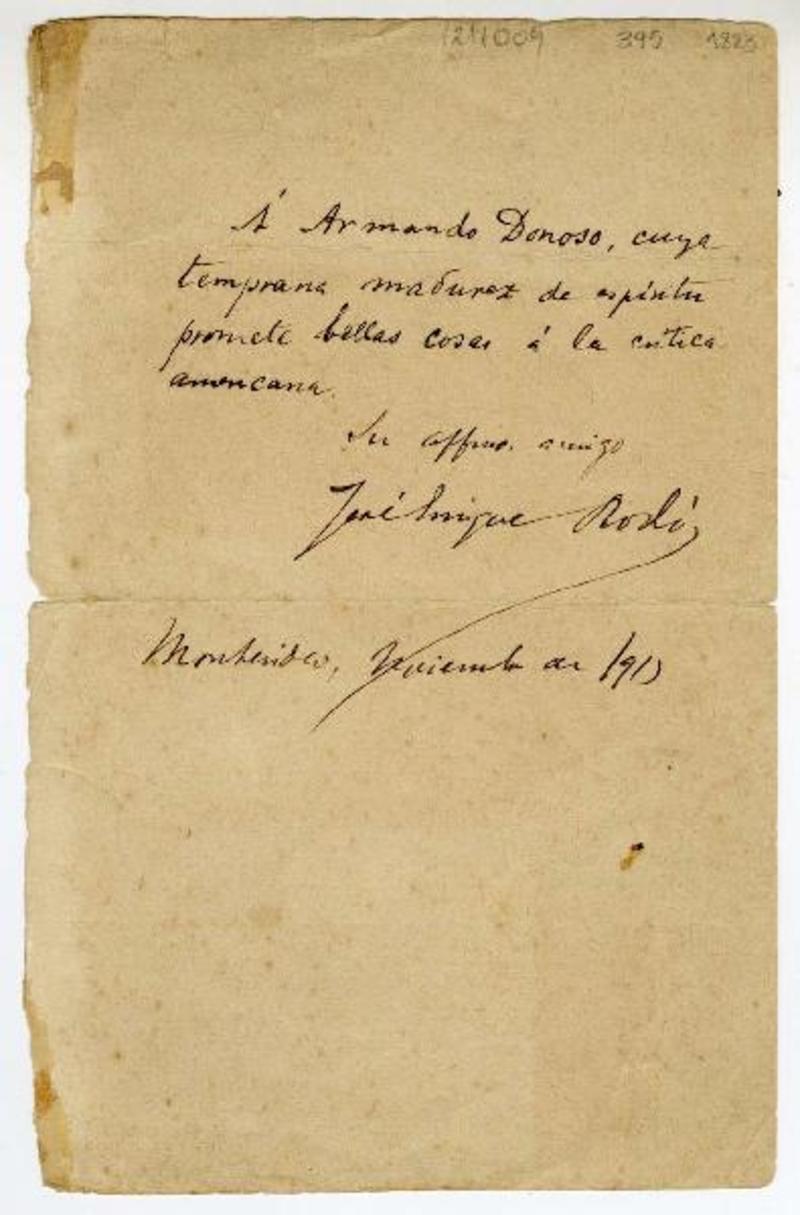 395 1823
Á Armando Donoso, cuya
temprana madurez de espíritu
promete bellas cosas á la crítica
americana.
Su affmo. amigo
José Enrique Rodó
Montevideo, de 191